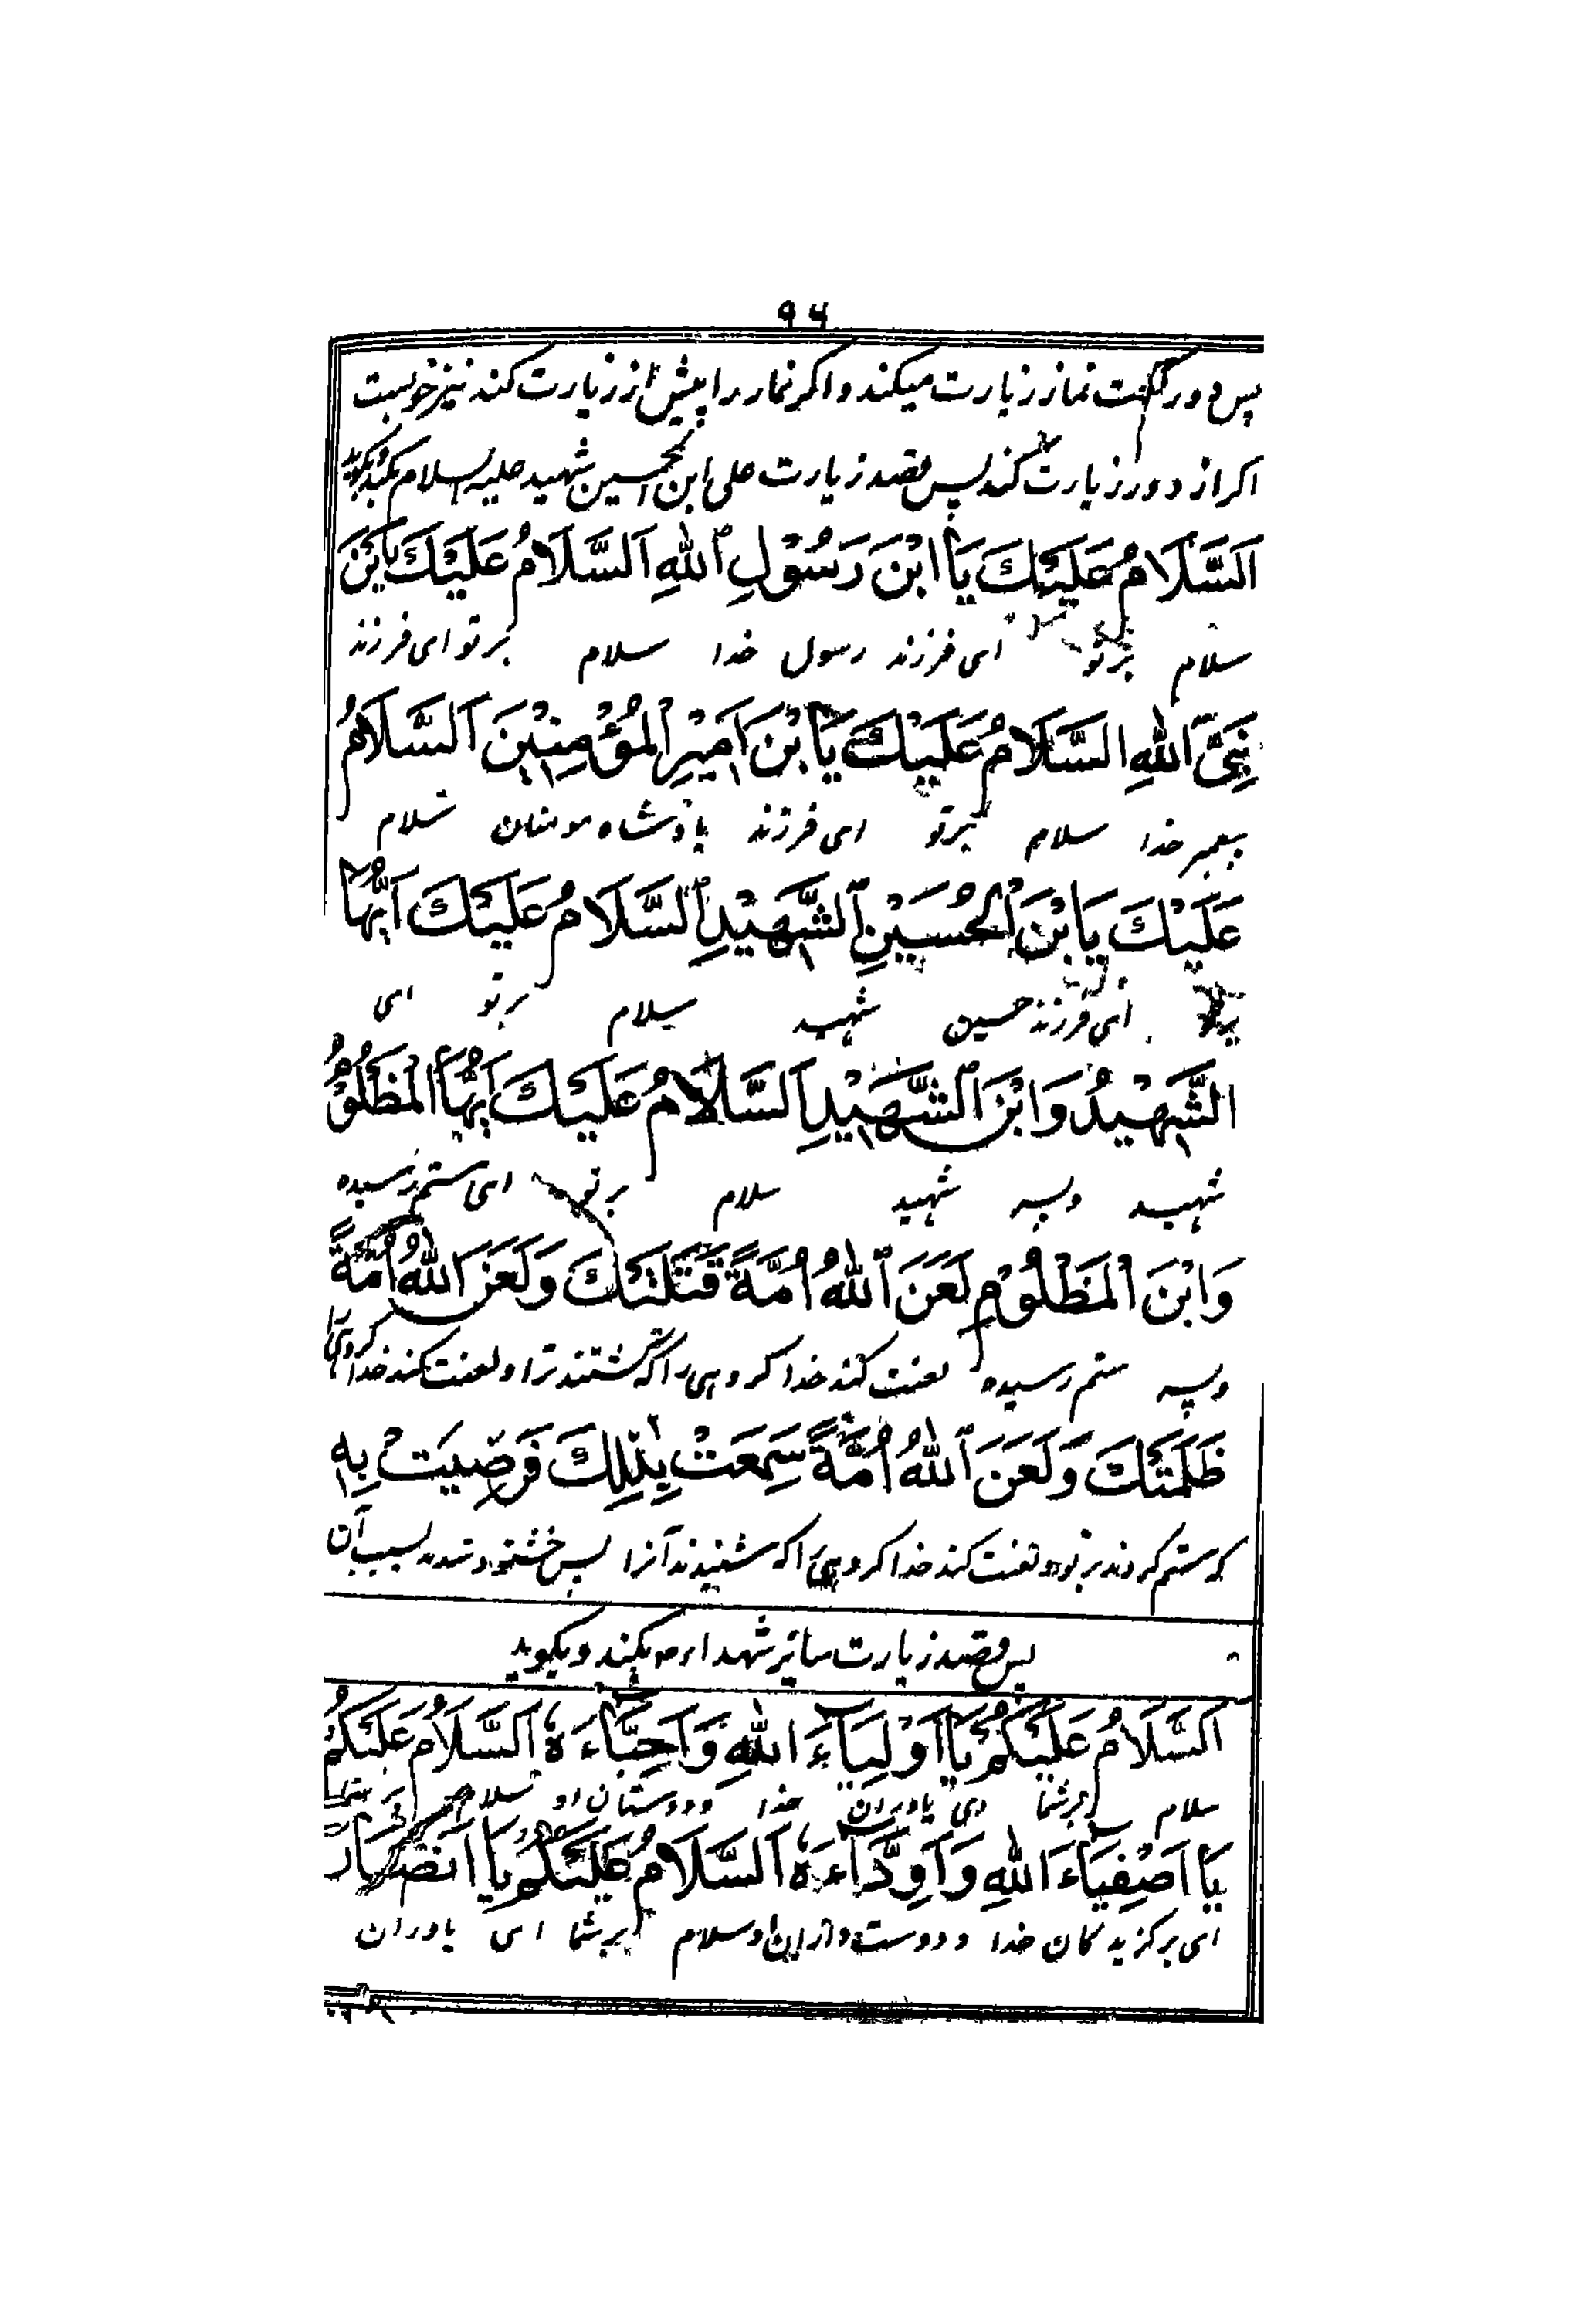 ۹۶
پس دو رکعت نماز زیارت میکند و اکر نمار را پیش از زیارت کند نیز خوبست
اکر از دور زیارت کند پس قصد زیارت علی ابن الحسین شهید علیه السلام بکند و بکوید
اَلسَّلَامُ عَلَیْكَ یَا ابْنَ رَسُوْلِ اللهِ اَلسَّلَامُ عَلَیْكَ یَابْنَ
سلام بر تو ای فرزند رسول خدا سلام بر تو ای فرزند
نَبِیِّ اللهِ السَّلَامُ عَلَیْكَ یَا بْنَ اَمِیْرِ الْمُؤْمِنِیْنَ اَلسَّلَامُ
پیغمبر خدا سلام بر تو ای فرزند پادشاه مومنان سلام
عَلَیْكَ یَا بْنَ الْحُسَیْنِ الشَّهِیْدِ اَلسَّلَامُ عَلَیْكَ اَیُّهَا
ای فرزند حسین شهید سلام بر تو ای
الشَّهِیْدُ وَابْنَ الشَّهِیْدِ اَلسَّلَامُ عَلَیْكَ اَیُّهَا الْمَظْلُوْمُ
شهید و پسر شهید سلام بر تو ای ستم رسیده
وَابْنَ الْمَظْلُوْمِ لَعَنَ اللهُ اُمَّةً قَتَلَتْكَ وَلَعَنَ اللهُ اُمَّةً
و پسر ستم رسیده لعنت کند خدا کروهی را که کشتند ترا و لعنت کند خدا کروهی را
ظَلَمَتْكَ وَلَعَنَ اللهُ اُمَّةً سَمِعَتْ بِذٰلِكَ فَرَضِیَتْ بِهٖ
که ستم کردند بر تو و لعنت کند خدا کروهی را که شنیدند آنرا پس خشنود شدند بسبب آن
پس قصد زیارت سائر شهداء بکند و بکوید
اَلسَّلَامُ عَلَیْكُمْ یَا اَوْلِیَآءَ اللهِ وَاَحِبَّآءَهُ اَلسَّلَامُ عَلَیْكُمْ
سلام بر شما ای یاوران خدا و دوستان او سلام بر شما
یَا اَصْفِیَآءَ اللهِ وَاَوِدَّآءَهُ اَلسَّلَامُ عَلَیْكُمْ یَا اَنْصَارَ
ای برکزیدکان خدا و دوست داران او سلام بر شما ای یاوران